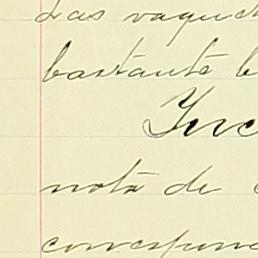 Las vaquet
bastante b
Inc
nota de
correspon